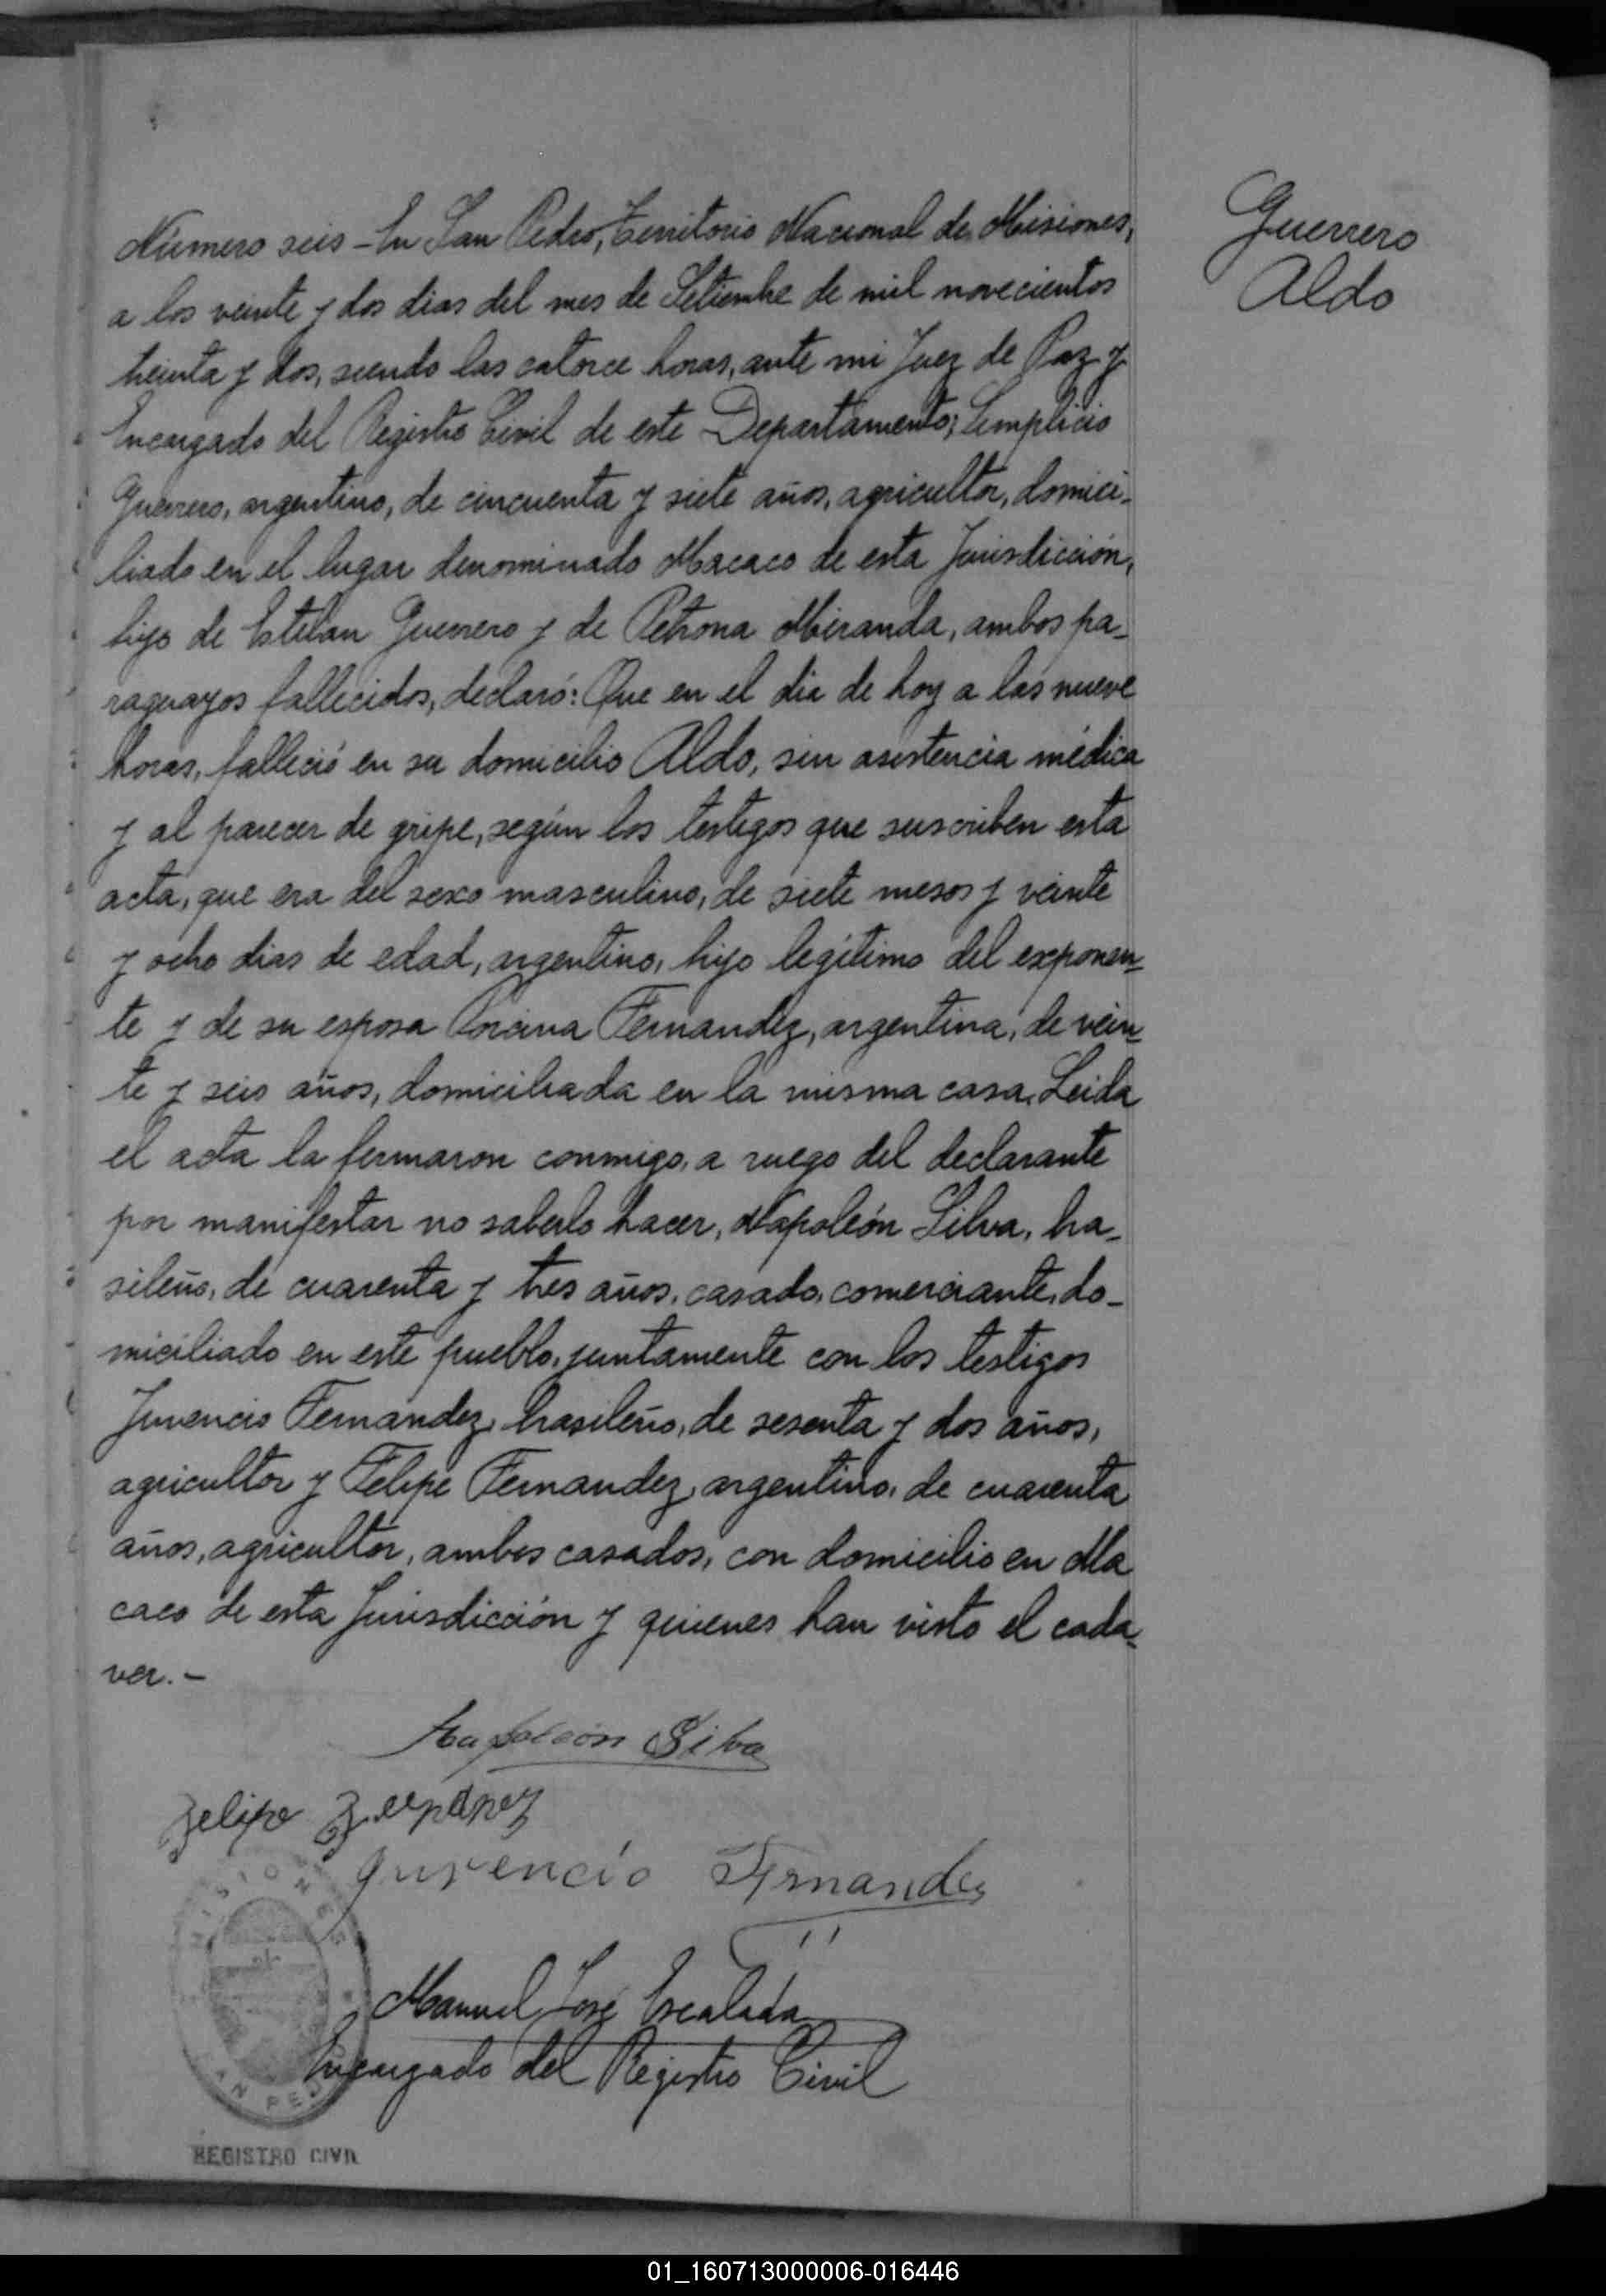 Guerrero
Aldo
Número seis - En San Pedro, Territorio Nacional de Misiones,
a los veinte y dos dias del mes de Setiembre de mil novecientos
treinta y dos, siendo las catorce horas, ante mi Juez de Paz y
Encargado del Registro Civil de este Departamento; Simplicio
Guerrero, argentino, de cincuenta y siete años, agricultor, domici-
liado en el lugar denominado Macaco de esta Jurisdicción,
hijo de Esteban Guerrero y de Petrona Miranda, ambos pa-
raguayos fallecidos, declaró: Que en el dia de hoy a las nueve
horas, falleció en su domicilio Aldo, sin asistencia médica
y al parecer de gripe, según los testigos que suscriben esta
acta, que era del sexo masculino, de siete meses y veinte
y ocho dias de edad, argentino, hijo legítimo del exponen-
te y de su esposa Fernandez, argentina, de vein-
te y seis años, domiciliada en la misma casa. Leida
el acta la firmaron conmigo, a ruego del declarante
por manifestar no saberlo hacer, Napoleón Silva, bra-
sileño, de cuarenta y tres años, casado, comerciante, do-
miciliado en este pueblo, juntamente con los testigos
Juvencio Fernandez, brasileño, de sesenta y dos años,
agricultor y Felipe Fernandez, argentino, de cuarenta
años, agricultor, ambos casados, con domicilio en Ma
caco de esta Jurisdicción y quienes han visto el cada-
ver. -
Napoleón Silva
Felipe
Juvencio Fernandez
Manuel José Escalada
Encargado del Registro Civil
MISIONES
SAN PED
REGISTRO CIVIL
01_160713000006-016446